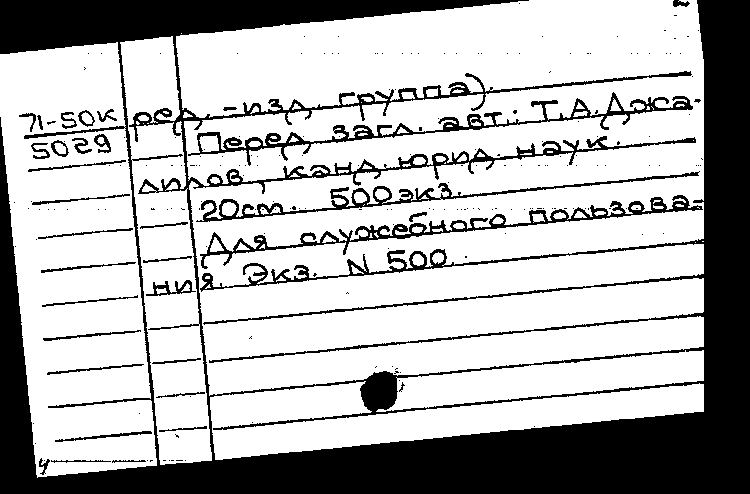 2
71-50К ред.-изд. группа).
5029 Перед загл. авт.: Т.А. Джа-
лилов, канд. юрид. наук.
20см. 500экз.
Для служебного пользова=
ния. Экз. N 500.
4